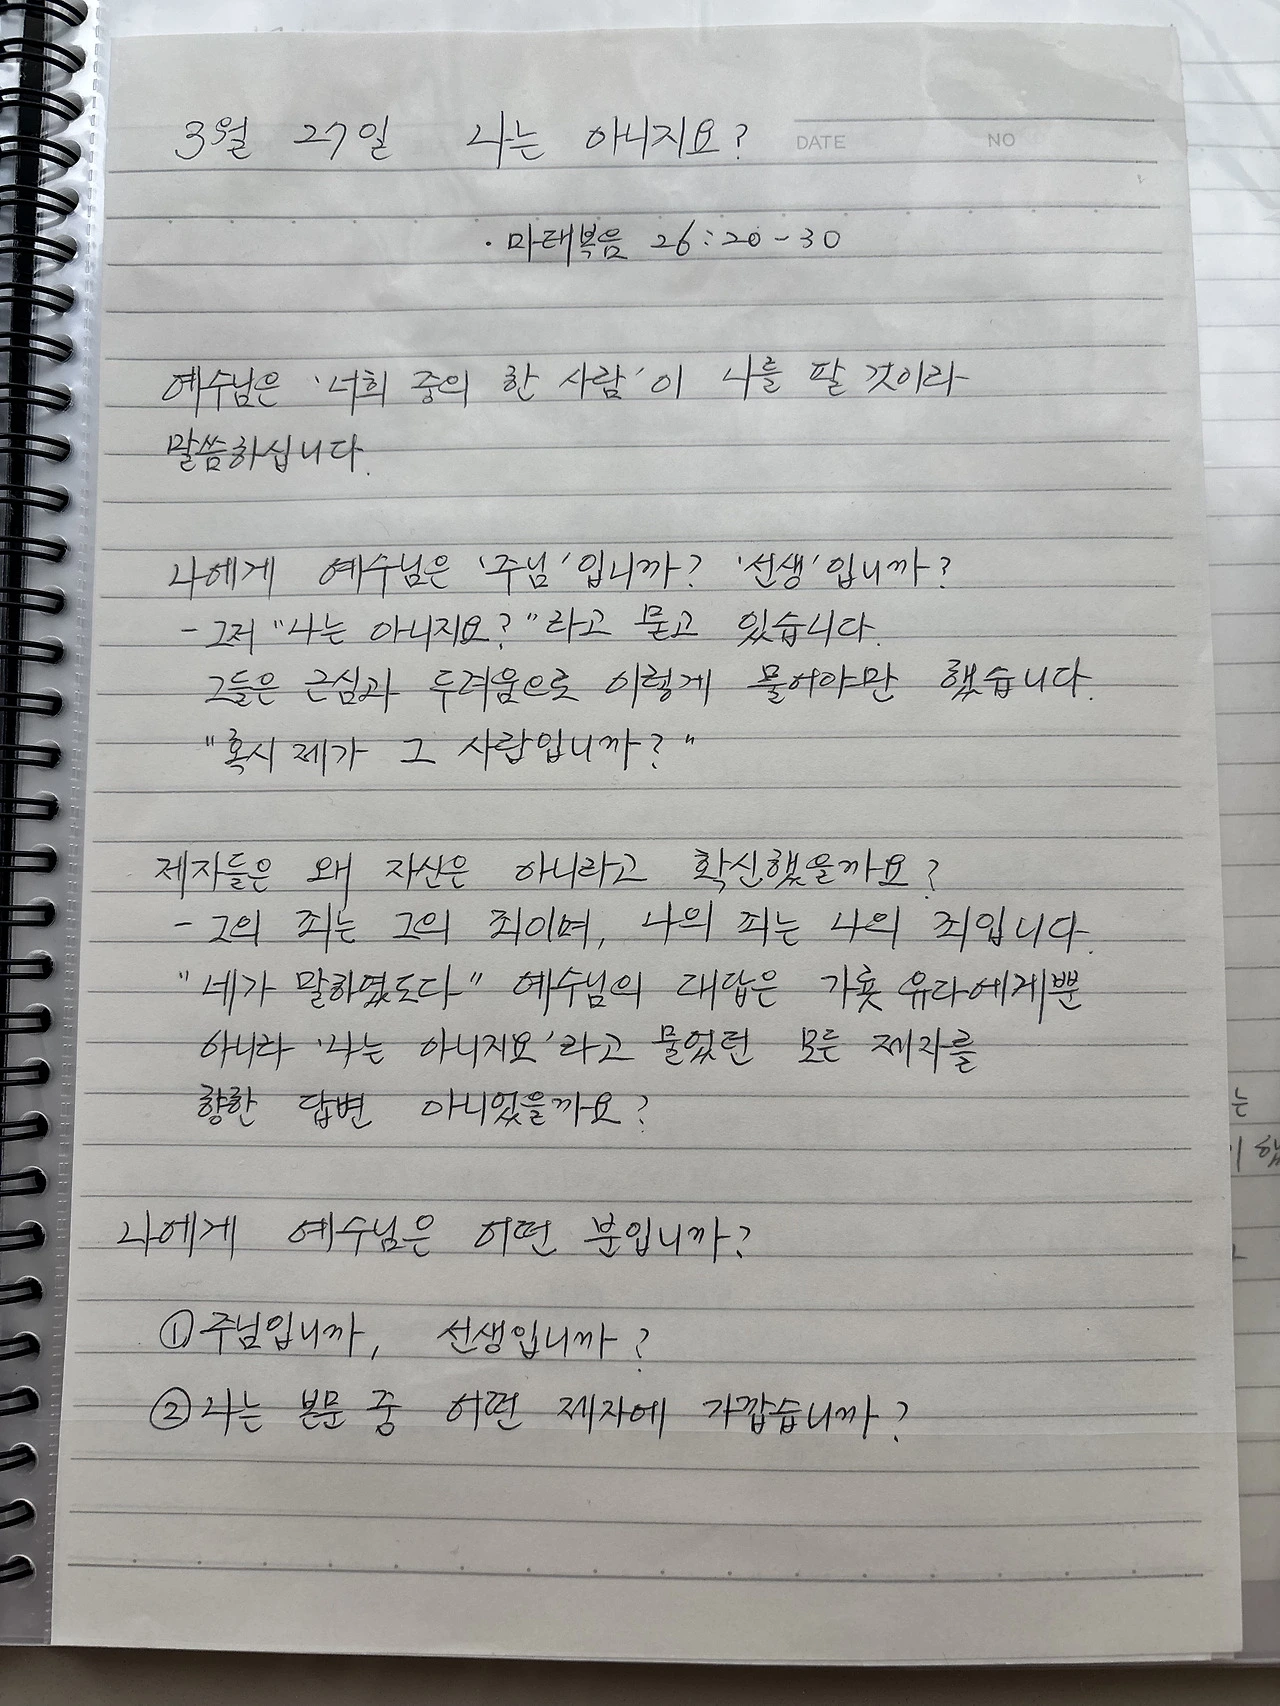 3월 27일 나는 아니지요?
DATE NO
· 마태복음 26:20-30
예수님은 '너희 중의 한 사람'이 나를 팔 것이라
말씀하십니다.
나에게 예수님은 '주님'입니까? '선생'입니까?
- 그저 "나는 아니지요?"라고 묻고 있습니다.
그들은 근심과 두려움으로 이렇게 물어야만 했습니다.
"혹시 제가 그 사람입니까?"
제자들은 왜 자신은 아니라고 확신했을까요?
- 그의 죄는 그의 죄이며, 나의 죄는 나의 죄입니다.
"네가 말하였도다" 예수님의 대답은 가룟 유다에게뿐
아니라 '나는 아니지요'라고 물었던 모든 제자를
향한 답변 아니었을까요?
나에게 예수님은 어떤 분입니까?
① 주님입니까, 선생입니까?
② 나는 본문 중 어떤 제자에 가깝습니까?
는